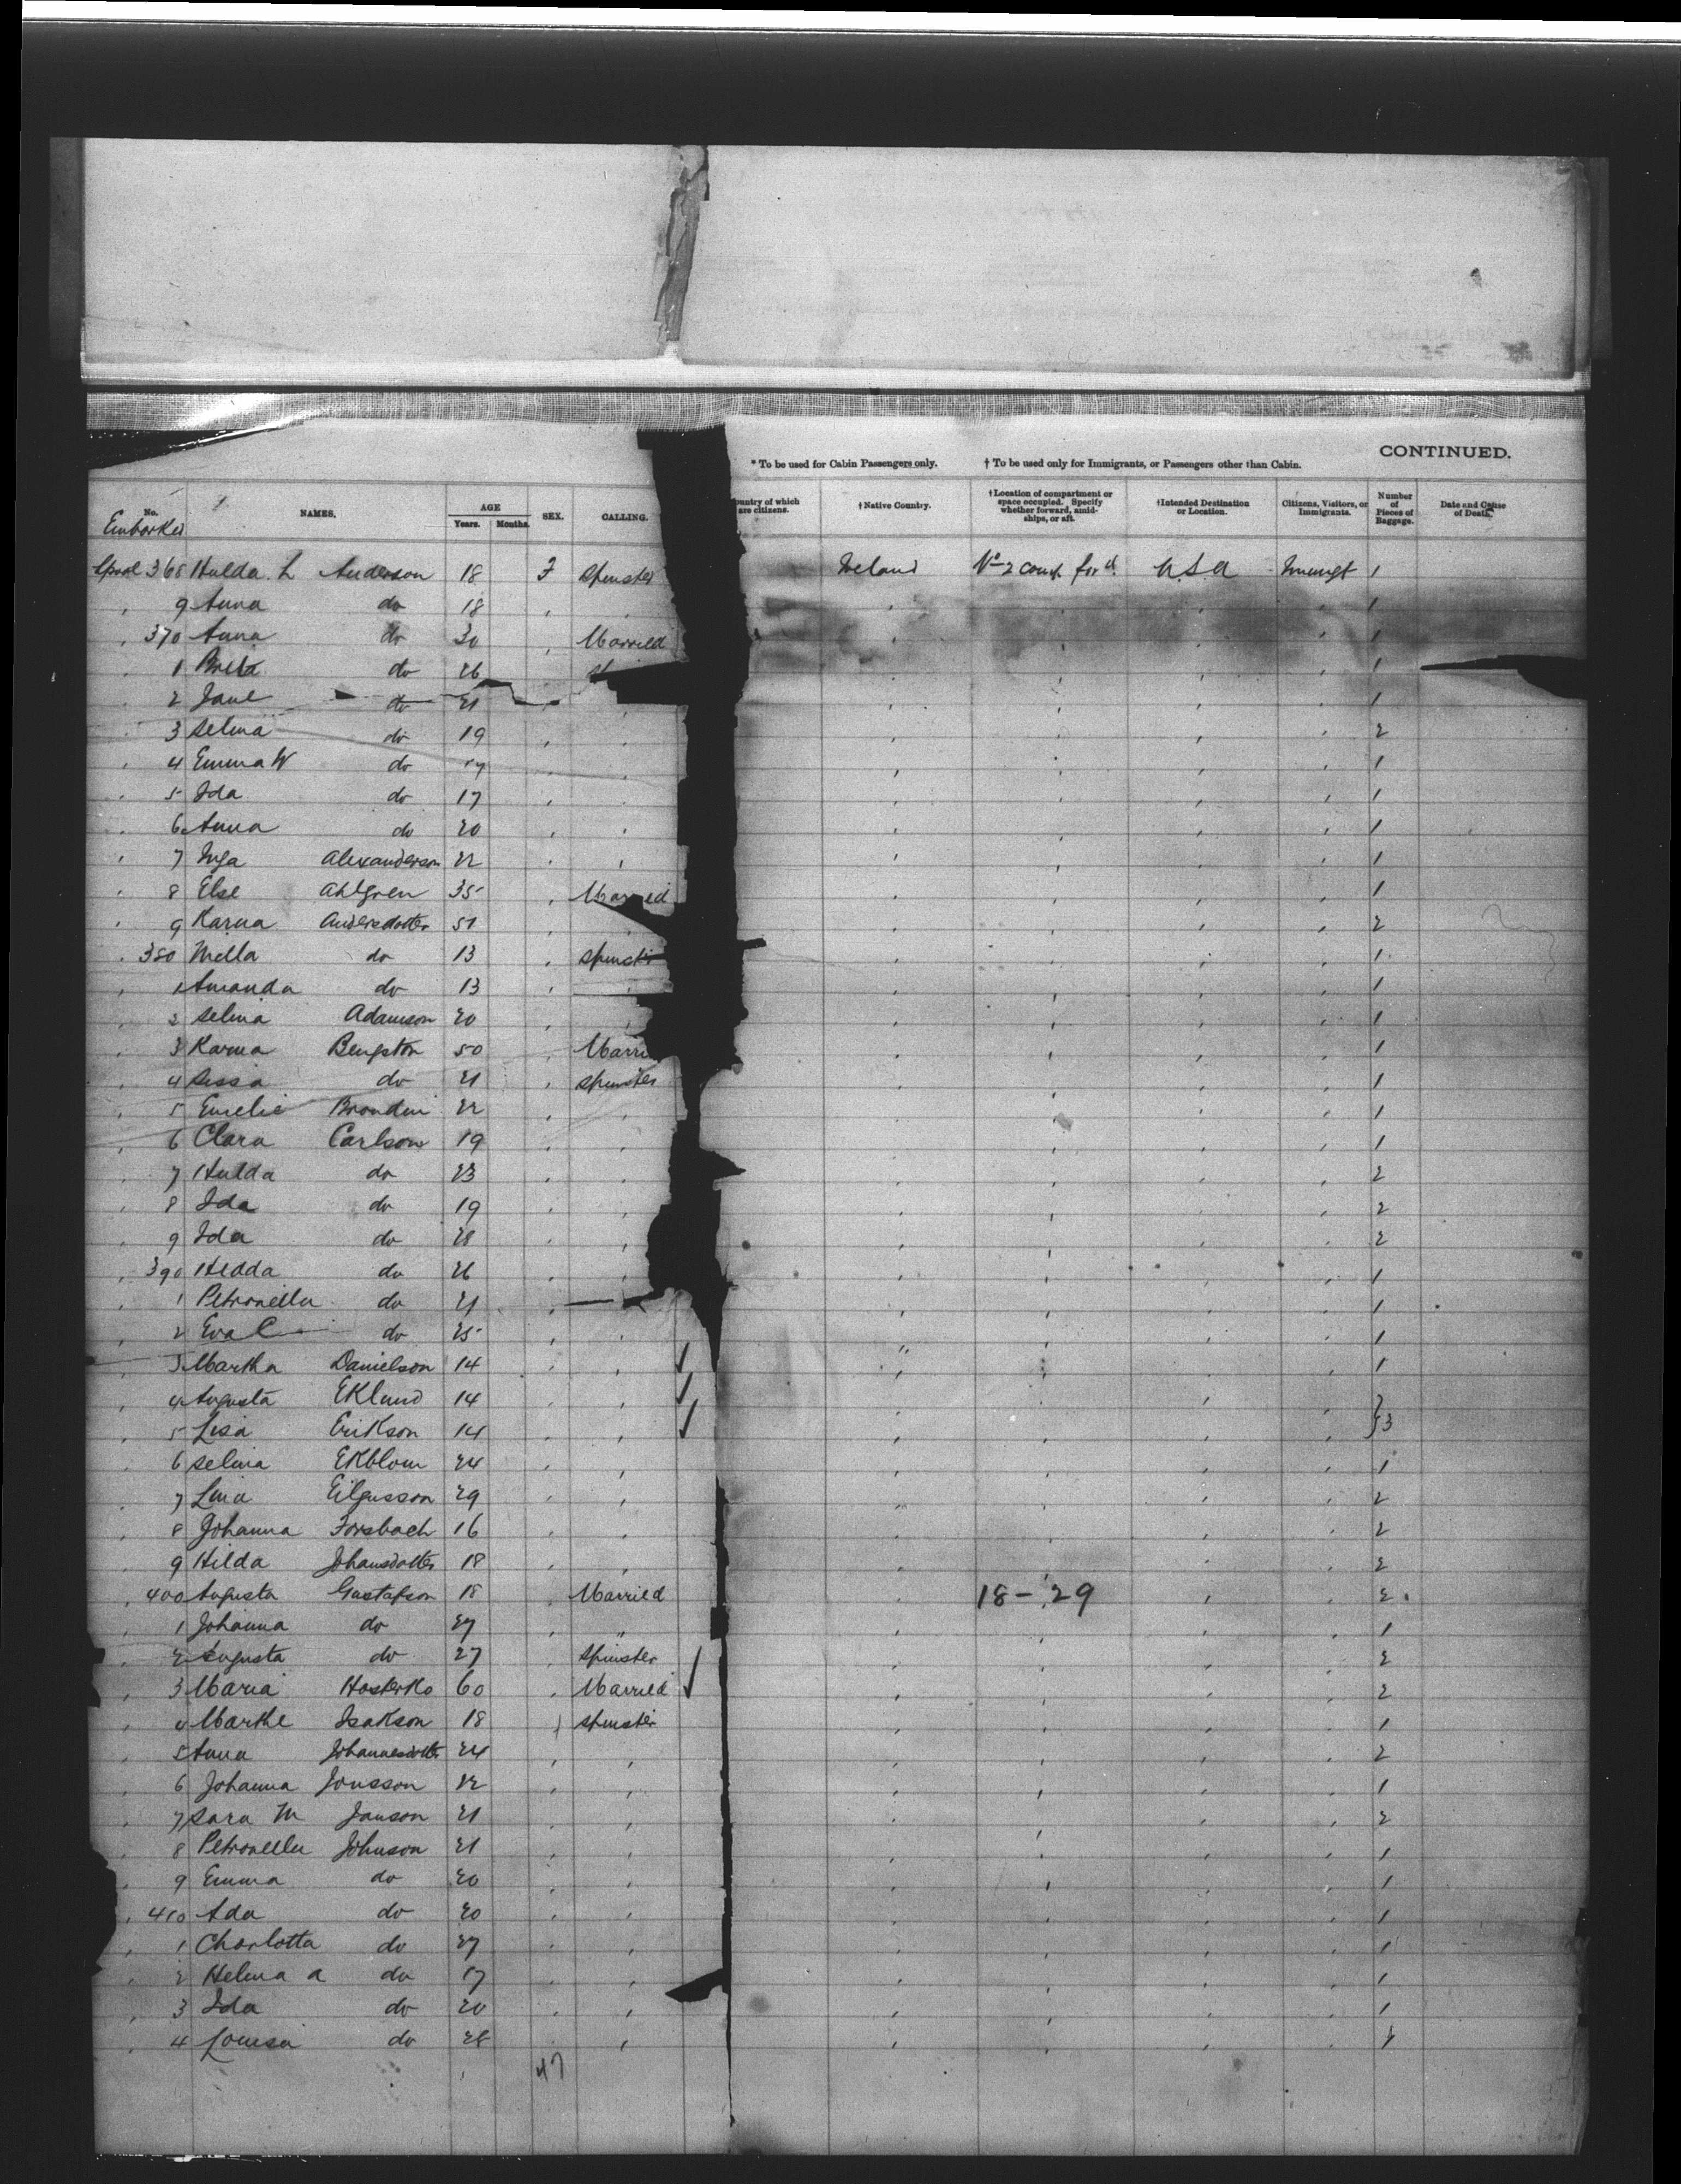 CONTINUED.
* To be used for Cabin Passengers only. † To be used only for Immigrants, or Passengers other than Cabin.
No. NAMES. AGE Years. Months. SEX. CALLING. Country of which are citizens. † Native Country. † Location of compartment or space occupied. Specify whether forward, amidships, or aft. † Intended Destination or Location. Citizens, Visitors, or Immigrants. Number of Pieces of Baggage. Date and Cause of Death.
Embarked
368 Hulda L Anderson 18 F Spinster Ireland Nº 2 comp. ford. U.S.A Immgt 1
9 Anna do 18 1
370 Anna do 30 Married 1
1 Breta do 26 1
2 Jane do 21 1
3 Selma do 19 2
4 Emma W do 1
5 Ida do 17 1
6 Anna do 20 1
7 Inga Alexanderson 22 1
8 Else Ahlgren 35 Married 1
9 Karna Andersdotter 51 2
380 Mella do 13 Spinster 1
1 Amanda do 13 1
2 Selma Adamson 20 1
3 Karna Bengston 50 Marri 1
4 Sissa do 21 Spinster 1
5 Emelie Brondin 22 1
6 Clara Carlson 19 1
7 Hulda do 23 2
8 Ida do 19 2
9 Ida do 28 2
390 Hedda do 26 1
1 Petronella do 21 1
2 Eva C do 25 1
3 Martha Danielson 14 ✓ " 1
4 Augusta EKlund 14 ✓
5 Lisa EriKson 14 ✓ } 3
6 Selma EKblom 24 1
7 Lina 29 2
8 Johanna Forsbach 16 2
9 Hilda Johansdotter 18 2
400 Augusta Gustafson 18 Married 18 - 29 2
1 Johanna do 27 " 1
2 Augusta do 27 Spinster 2
3 Maria HosterKo 60 Married ✓ 2
4 Marthe IsaKson 18 Spinster 1
5 Anna Johannesdotter 24 2
6 Johanna Jonsson 22 1
7 Sara M Janson 21 2
8 Petronella Johnson 21 1
9 Emma do 20 1
410 Ada do 20 1
1 Charlotta do 27 1
2 Helma A do 17 1
3 Ida do 20 1
4 Louisa do 28 1
47